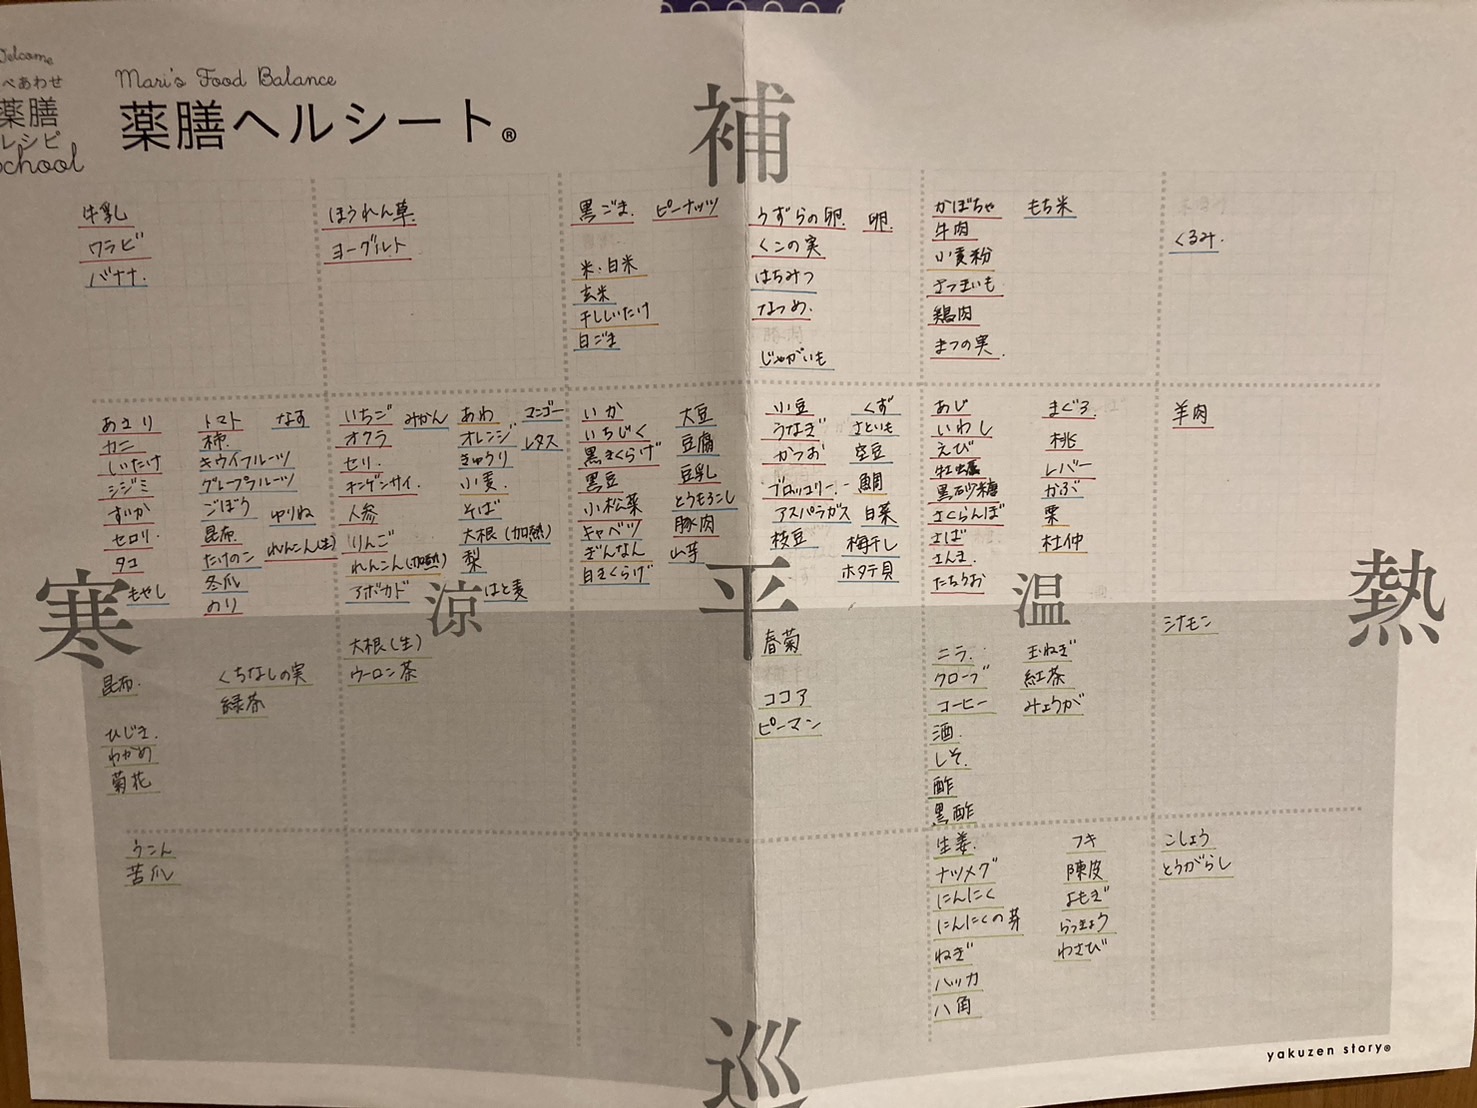 Welcome
べあわせ
薬膳
レシピ
School
Mari's Food Balance
薬膳ヘルシート®
補
牛乳
ワラビ
バナナ.
ほうれん草.
ヨーグルト
黒ごま. ピーナッツ
米・白米
玄米
干ししいたけ
白ごま
うずらの卵. 卵.
くこの実
はちみつ
なつめ.
じゃがいも
かぼちゃ もち米
牛肉
小麦粉
さつまいも
鶏肉
まつの実.
くるみ.
あさり トマト なす
カニ 柿.
しいたけ キウイフルーツ
シジミ グレープフルーツ
すいか ごぼう ゆりね
セロリ. 昆布. れんこん(生)
タコ たけのこ
もやし 冬瓜
のり
いちご みかん あわ マンゴー
オクラ オレンジ レタス
セリ. きゅうり
チンゲンサイ. 小麦.
人参 そば
りんご 大根(加熱)
れんこん(加熱) 梨
アボカド はと麦
いか 大豆
いちじく 豆腐
黒きくらげ 豆乳
黒豆 とうもろこし
小松菜 豚肉
キャベツ 山芋
ぎんなん
白きくらげ
小豆 くず
うなぎ さといも
かつお 空豆
ブロッコリー. 鯛
アスパラガス 白菜
枝豆 梅干し
ホタテ貝
あじ まぐろ.
いわし 桃
えび レバー
牡蠣 かぶ
黒砂糖 栗
さくらんぼ 杜仲
さば
さんま
たちうお
羊肉
寒
涼
平
温
熱
昆布. くちなしの実
緑茶
ひじき.
わかめ
菊花
大根(生)
ウーロン茶
春菊
ココア
ピーマン
ニラ. 玉ねぎ
クローブ 紅茶
コーヒー みょうが
酒.
しそ.
酢
黒酢
シナモン
うこん
苦瓜
生姜. フキ
ナツメグ 陳皮
にんにく よもぎ
にんにくの芽 らっきょう
ねぎ わさび
ハッカ
八角
こしょう
とうがらし
巡
yakuzen story®